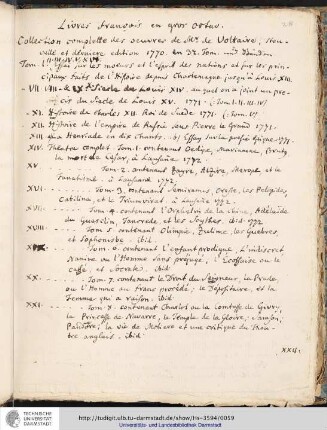 Livres François en gros Octav.
Collection complette des oeuvres de Mr. de Voltaire, Nou-
velle et derniere edition 1770. en 22. Tom.
I. II. III. IV. V. VI.
Tom. Essai sur les moeurs et l'esprit des nations et sur les prin-
cipaux faits de l'Histoire depuis Charlemagne jusqu'à Louis XIII.
- VII. VIII. IX Siecle de Louis XIV. auquel on a joint un pre-
cis du Siecle de Louis XV. 1771 - (Tom. I. II. III. IV)
- XI. Histoire de Charles XII. Roi de Suede 1771. (Tom. V)
- XII. Histoire de l'empire de Russie sous Pierre le Grand 1771.
- XIII. La Henriade en dix Chants. Essay sur la poësie épique 1771.
- XIV. Théatre complet Tom. 1. contenant Oedipe, Mariamne, Brutus
la mort de César, à Lausanne 1772.
- XV Tom. 2. contenant Zayre, Alzire, Merope et le
Fanatisme. à Lausanne 1772.
XVI. Tom. 3. contenant Semiramis, Oreste, les Pelopides,
Catilina, et le Triumvirat, à Lausanne 1772.
XVII. Tom. 4. contenant l'Orphelin de la Chine, Adélaide
du Guesclin, Tancrede, et les Scythes. ibid. 1772
XVIII. Tom. 5. contenant Olimpie, Zulime, les Guebres,
et Sophonisbe. ibid.
XIX. Tom. 6. contenant l'enfant prodigue, l'indiscret
Nanine ou l'Homme sans préjugé, l'Ecossaise ou le
caffé, et Socrate. ibid.
XX. Tom. 7. contenant le Droit du Seigneur, la Prude
ou l'Homme au franc procédé; le Depositaire, et la
Femme qui a raison. ibid.
XXI. Tom. 8. contenant Charlot ou la Comtesse de Givry,
la Princesse de Navarre, le Temple de la Gloire, Samson,
Pandore, la vie de Moliere et une critique du Thea-
tre anglais. ibid.
XXII.
TECHNISCHE
UNIVERSITÄT
DARMSTADT
http://tudigit.ulb.tu-darmstadt.de/show/Hs-3594/0059
Universitäts- und Landesbibliothek Darmstadt